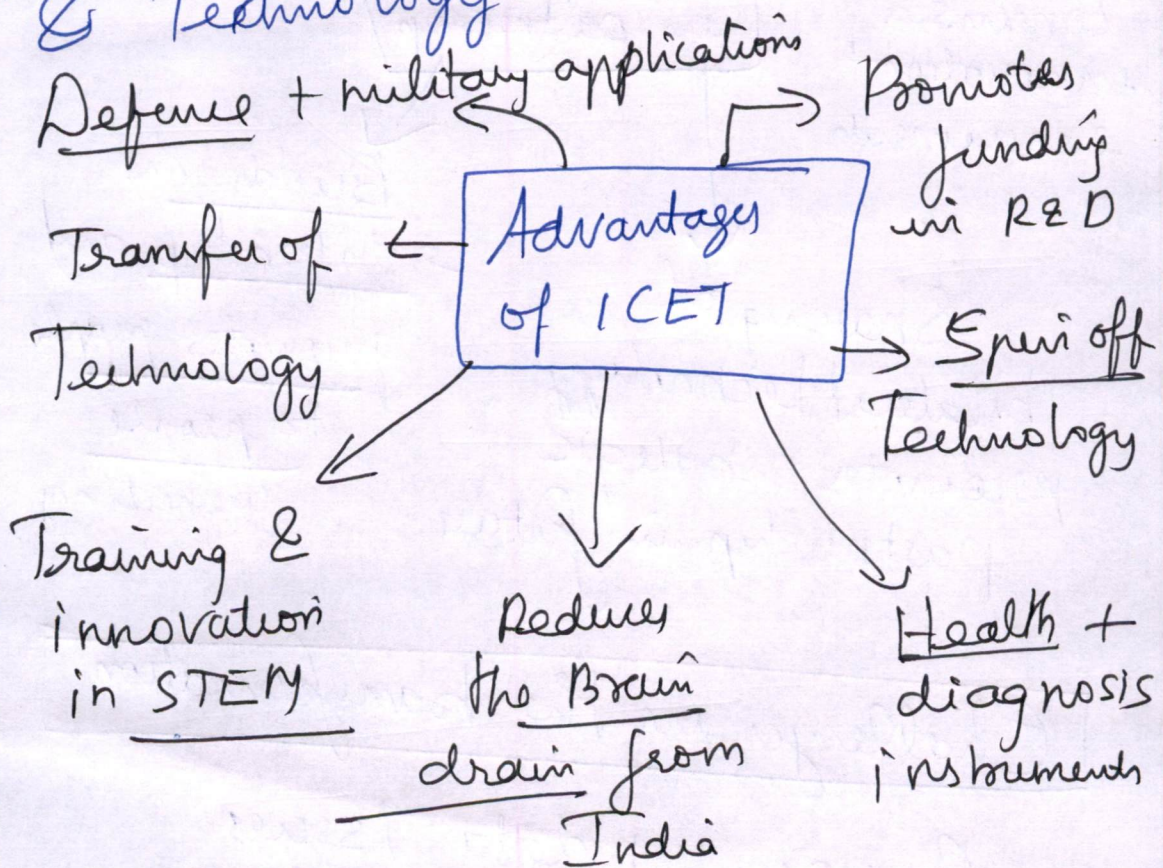 & Technology
Defence + military applications
Promotes
funding
in R&D
Advantages
of ICET
Transfer of
Technology
Spin off
Technology
Training &
innovation
in STEM
Reduces
the Brain
drain from
India
Health +
diagnosis
instruments